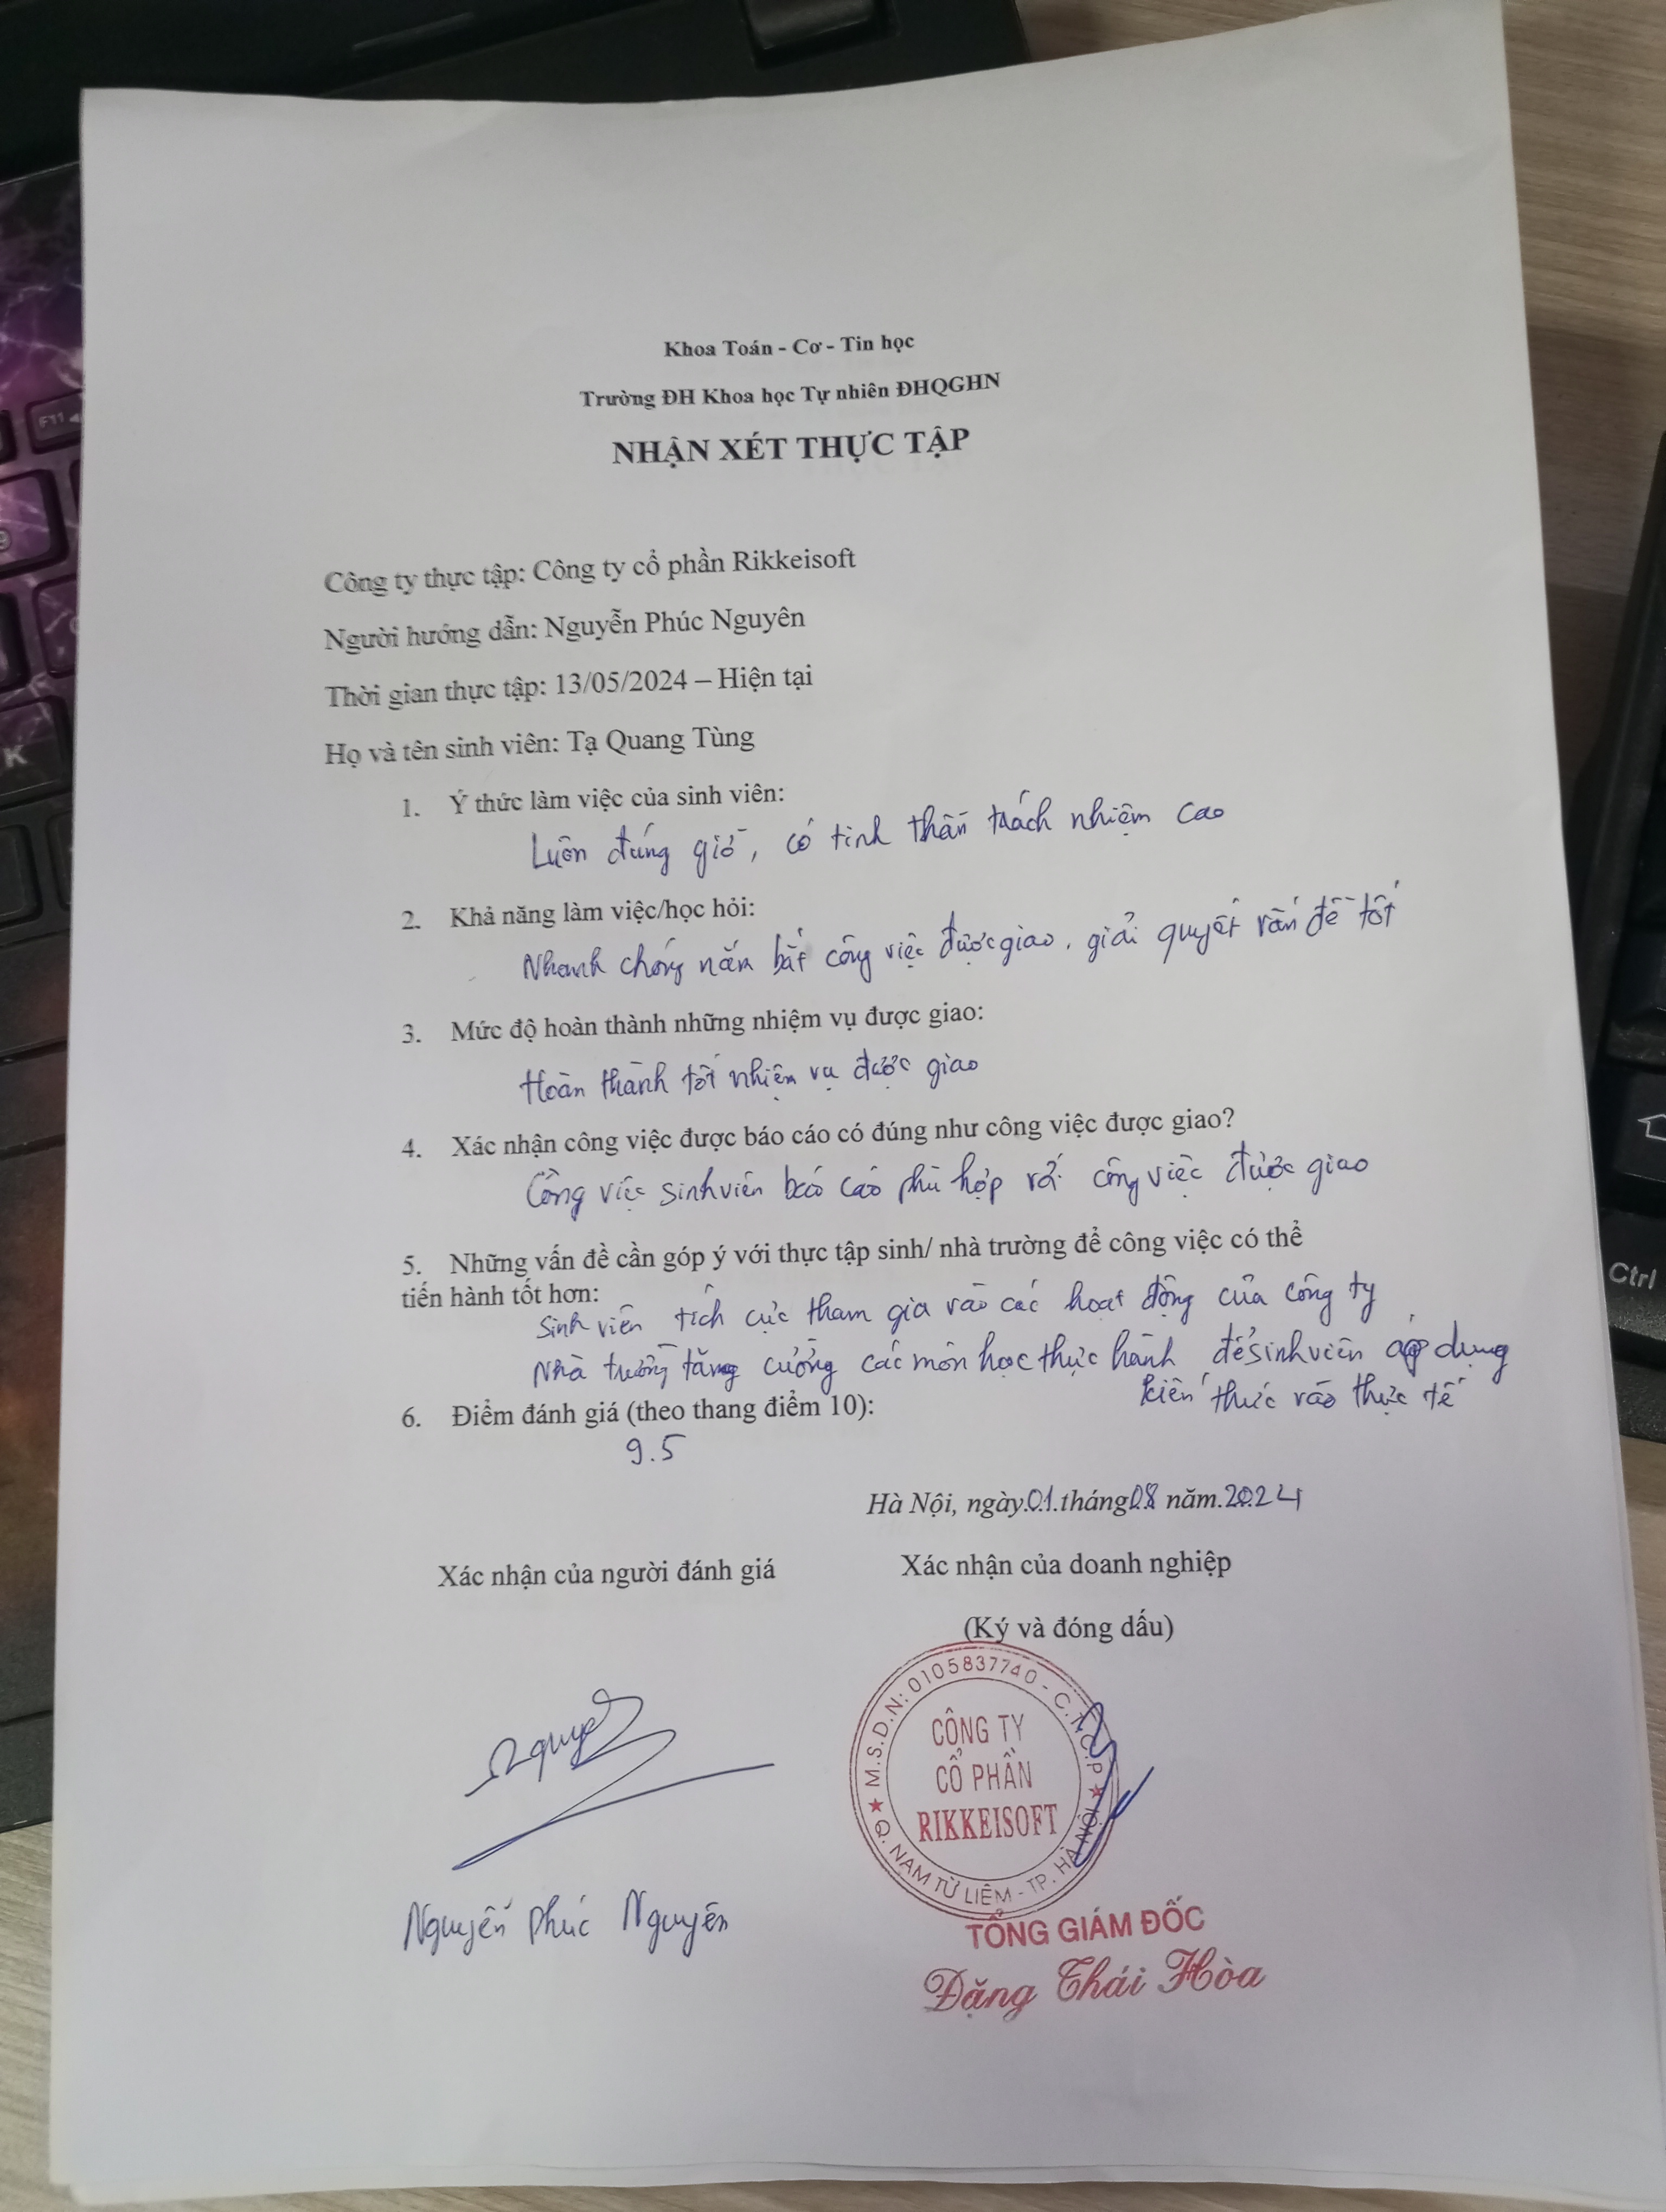 Khoa Toán - Cơ - Tin học
Trường ĐH Khoa học Tự nhiên ĐHQGHN
NHẬN XÉT THỰC TẬP
Công ty thực tập: Công ty cổ phần Rikkeisoft
Người hướng dẫn: Nguyễn Phúc Nguyên
Thời gian thực tập: 13/05/2024 – Hiện tại
Họ và tên sinh viên: Tạ Quang Tùng
1. Ý thức làm việc của sinh viên:
Luôn đúng giờ, có tinh thần trách nhiệm cao
2. Khả năng làm việc/học hỏi:
Nhanh chóng nắm bắt công việc được giao, giải quyết vấn đề tốt
3. Mức độ hoàn thành những nhiệm vụ được giao:
Hoàn thành tốt nhiệm vụ được giao
4. Xác nhận công việc được báo cáo có đúng như công việc được giao?
Công việc sinh viên báo cáo phù hợp với công việc được giao
5. Những vấn đề cần góp ý với thực tập sinh/ nhà trường để công việc có thể
tiến hành tốt hơn:
Sinh viên tích cực tham gia vào các hoạt động của công ty
Nhà trường tăng cường các môn học thực hành để sinh viên áp dụng
kiến thức vào thực tế
6. Điểm đánh giá (theo thang điểm 10):
9.5
Hà Nội, ngày.01.tháng08 năm.2024
Xác nhận của người đánh giá
Xác nhận của doanh nghiệp
(Ký và đóng dấu)
M.S.D.N: 0105837740 - C.T.C.P
CÔNG TY
CỔ PHẦN
RIKKEISOFT
Q. NAM TỪ LIÊM - TP. HÀ NỘI
Nguyên
Nguyễn Phúc Nguyên
TỔNG GIÁM ĐỐC
Đặng Thái Hòa
F11
K
Ctrl